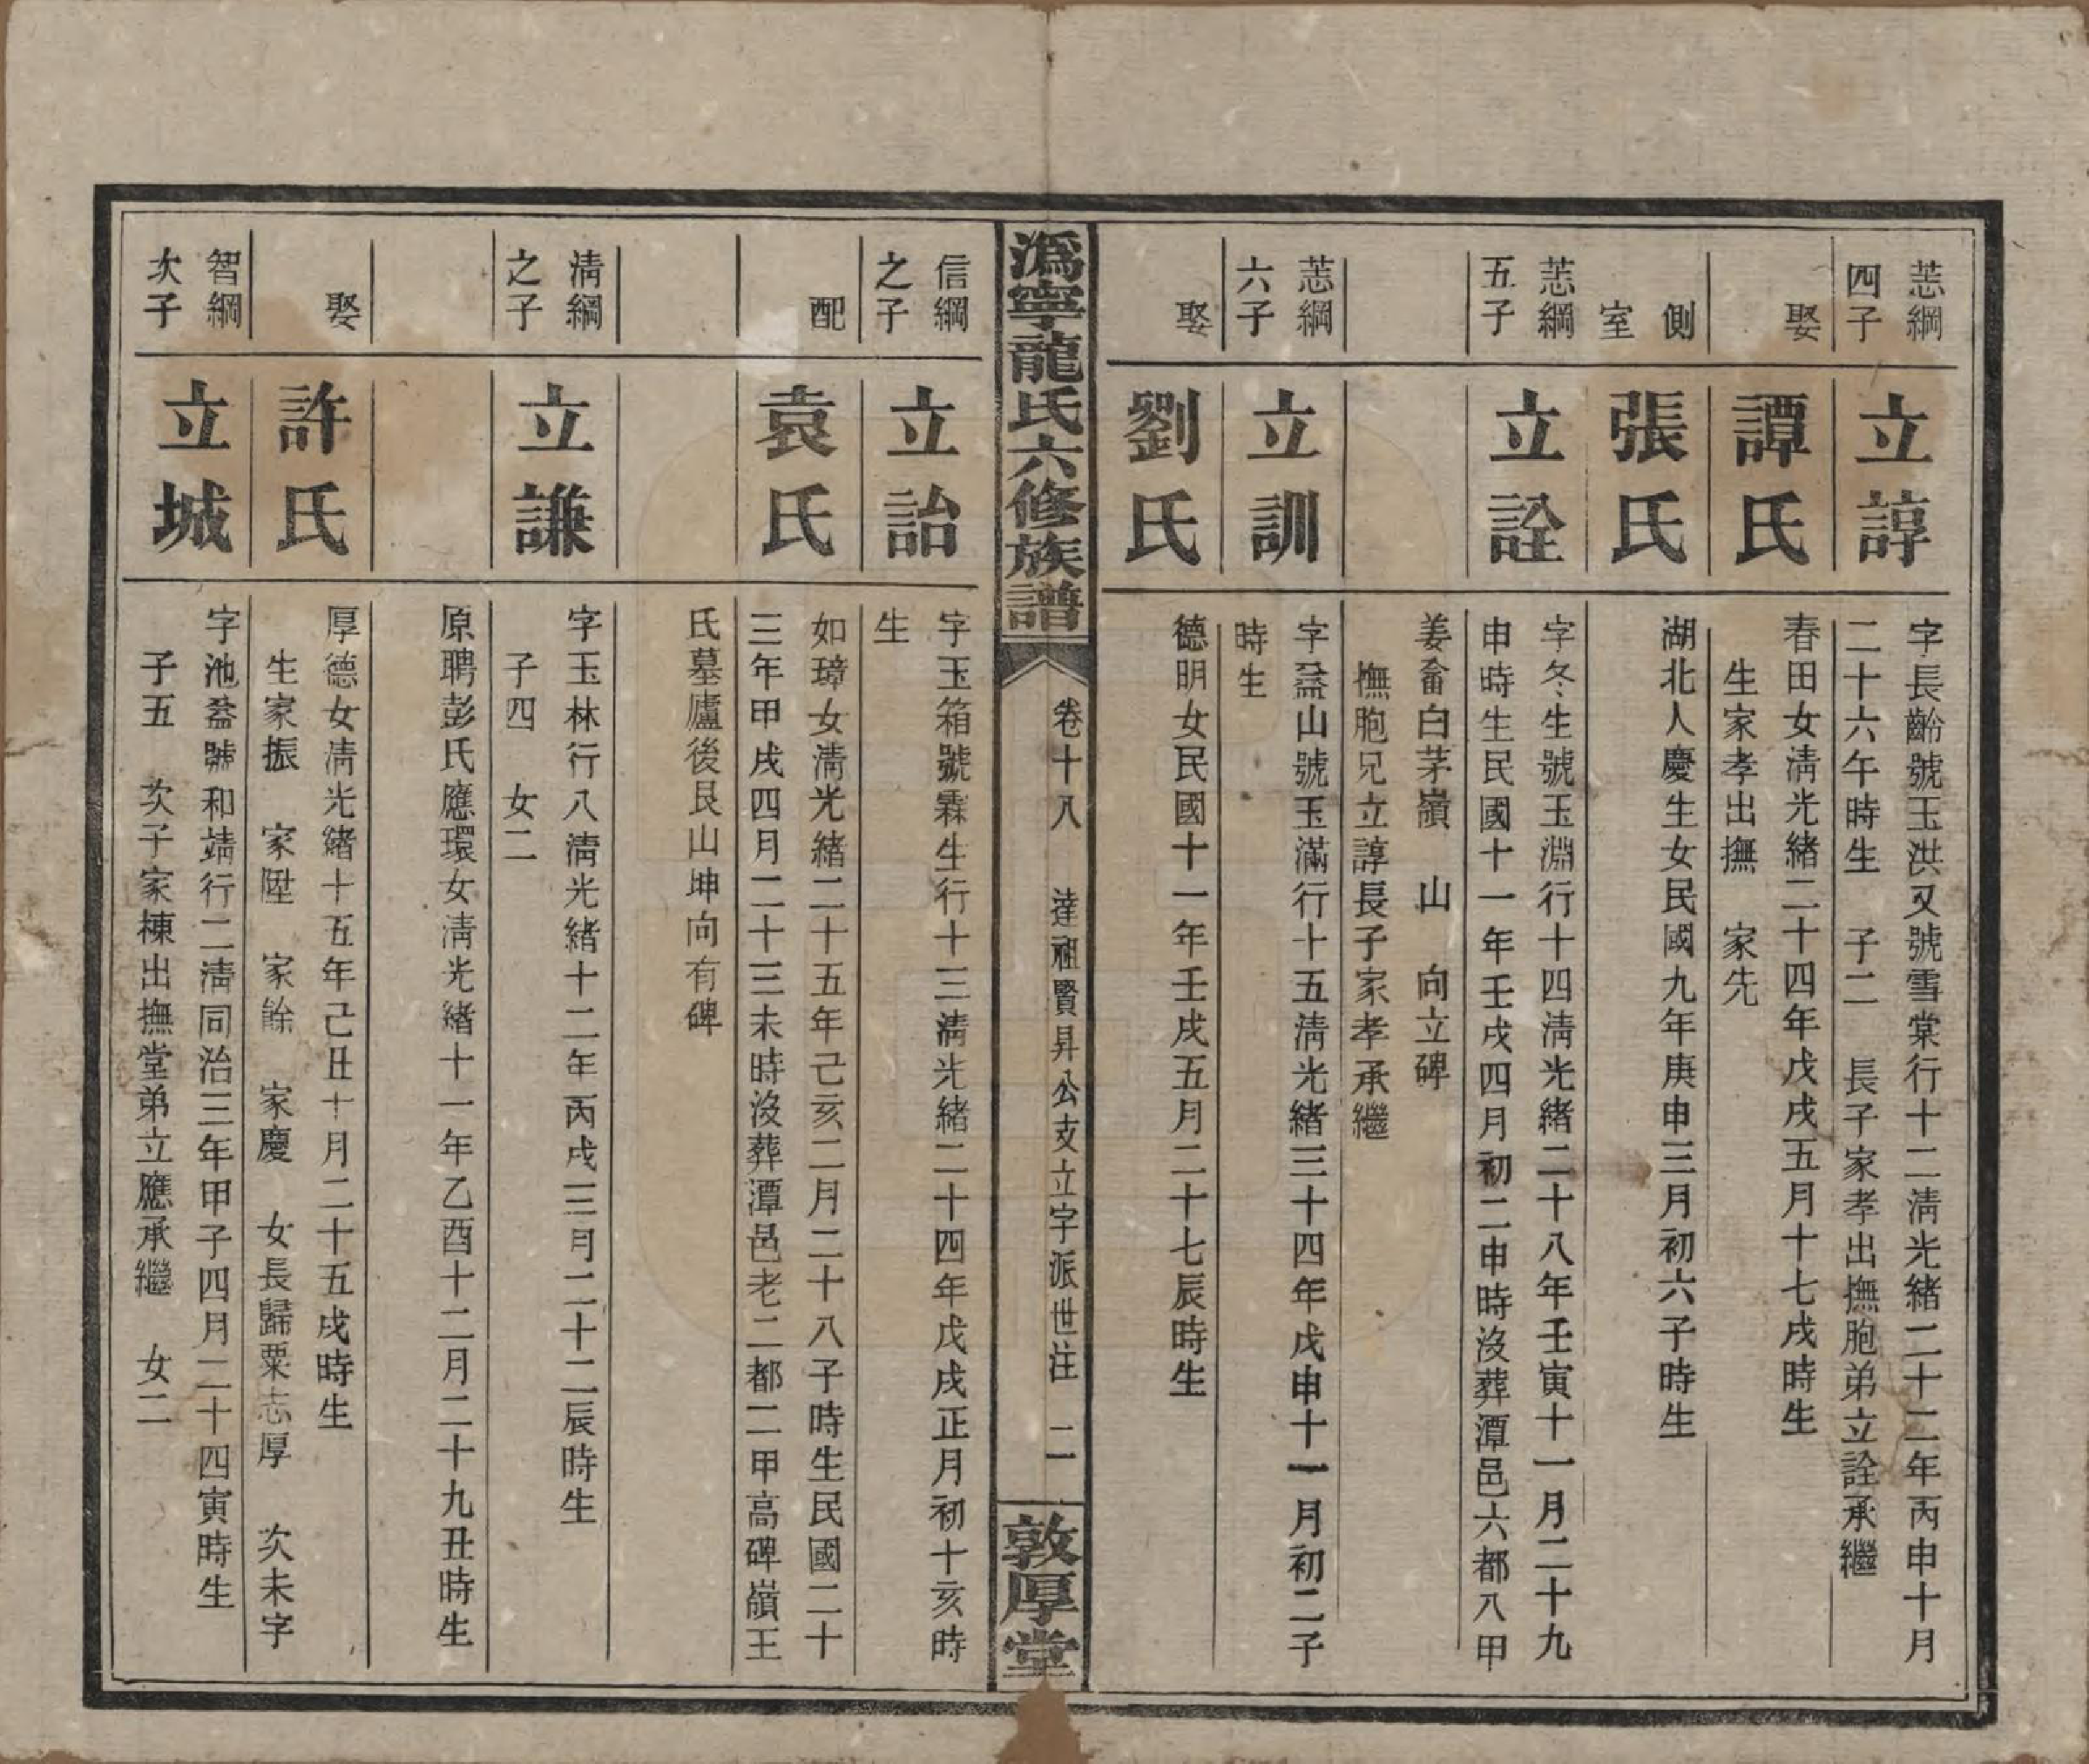 恙綱
四子
立諄
字長齡號玉洪又號雪棠行十二淸光緒二十二年丙申十月
二十六午時生　子二　長子家孝出撫胞弟立詮承繼
娶
譚氏
春田女淸光緒二十四年戊戌五月十七戌時生
生家孝出撫　家先
側
室
張氏
湖北人慶生女民國九年庚申三月初六子時生
恙綱
五子
立詮
字冬生號玉淵行十四淸光緒二十八年壬寅十一月二十九
申時生民國十一年壬戌四月初二申時沒葬潭邑六都八甲
姜畲白茅嶺　山　向立碑
撫胞兄立諄長子家孝承繼
恙綱
六子
立訓
字益山號玉滿行十五淸光緒三十四年戊申十一月初二子
時生
娶
劉氏
德明女民國十一年壬戌五月二十七辰時生
潙寧龍氏六修族譜
卷十八　達祖賢昇公支立字派世注　二
敦厚堂
信綱
之子
立詒
字玉箱號霖生行十三淸光緒二十四年戊戌正月初十亥時
生
配
袁氏
如璋女淸光緒二十五年己亥二月二十八子時生民國二十
三年甲戌四月二十三未時沒葬潭邑老二都二甲高碑嶺王
氏墓廬後艮山坤向有碑
淸綱
之子
立謙
字玉林行八淸光緒十二年丙戌三月二十二辰時生
子四　女二
原聘彭氏應環女淸光緒十一年乙酉十二月二十九丑時生
娶
許氏
厚德女淸光緒十五年己丑十月二十五戌時生
生家振　家陞　家餘　家慶　女長歸粟志厚　次未字
智綱
次子
立城
字池益號和靖行二淸同治三年甲子四月二十四寅時生
子五　次子家棟出撫堂弟立應承繼　女二